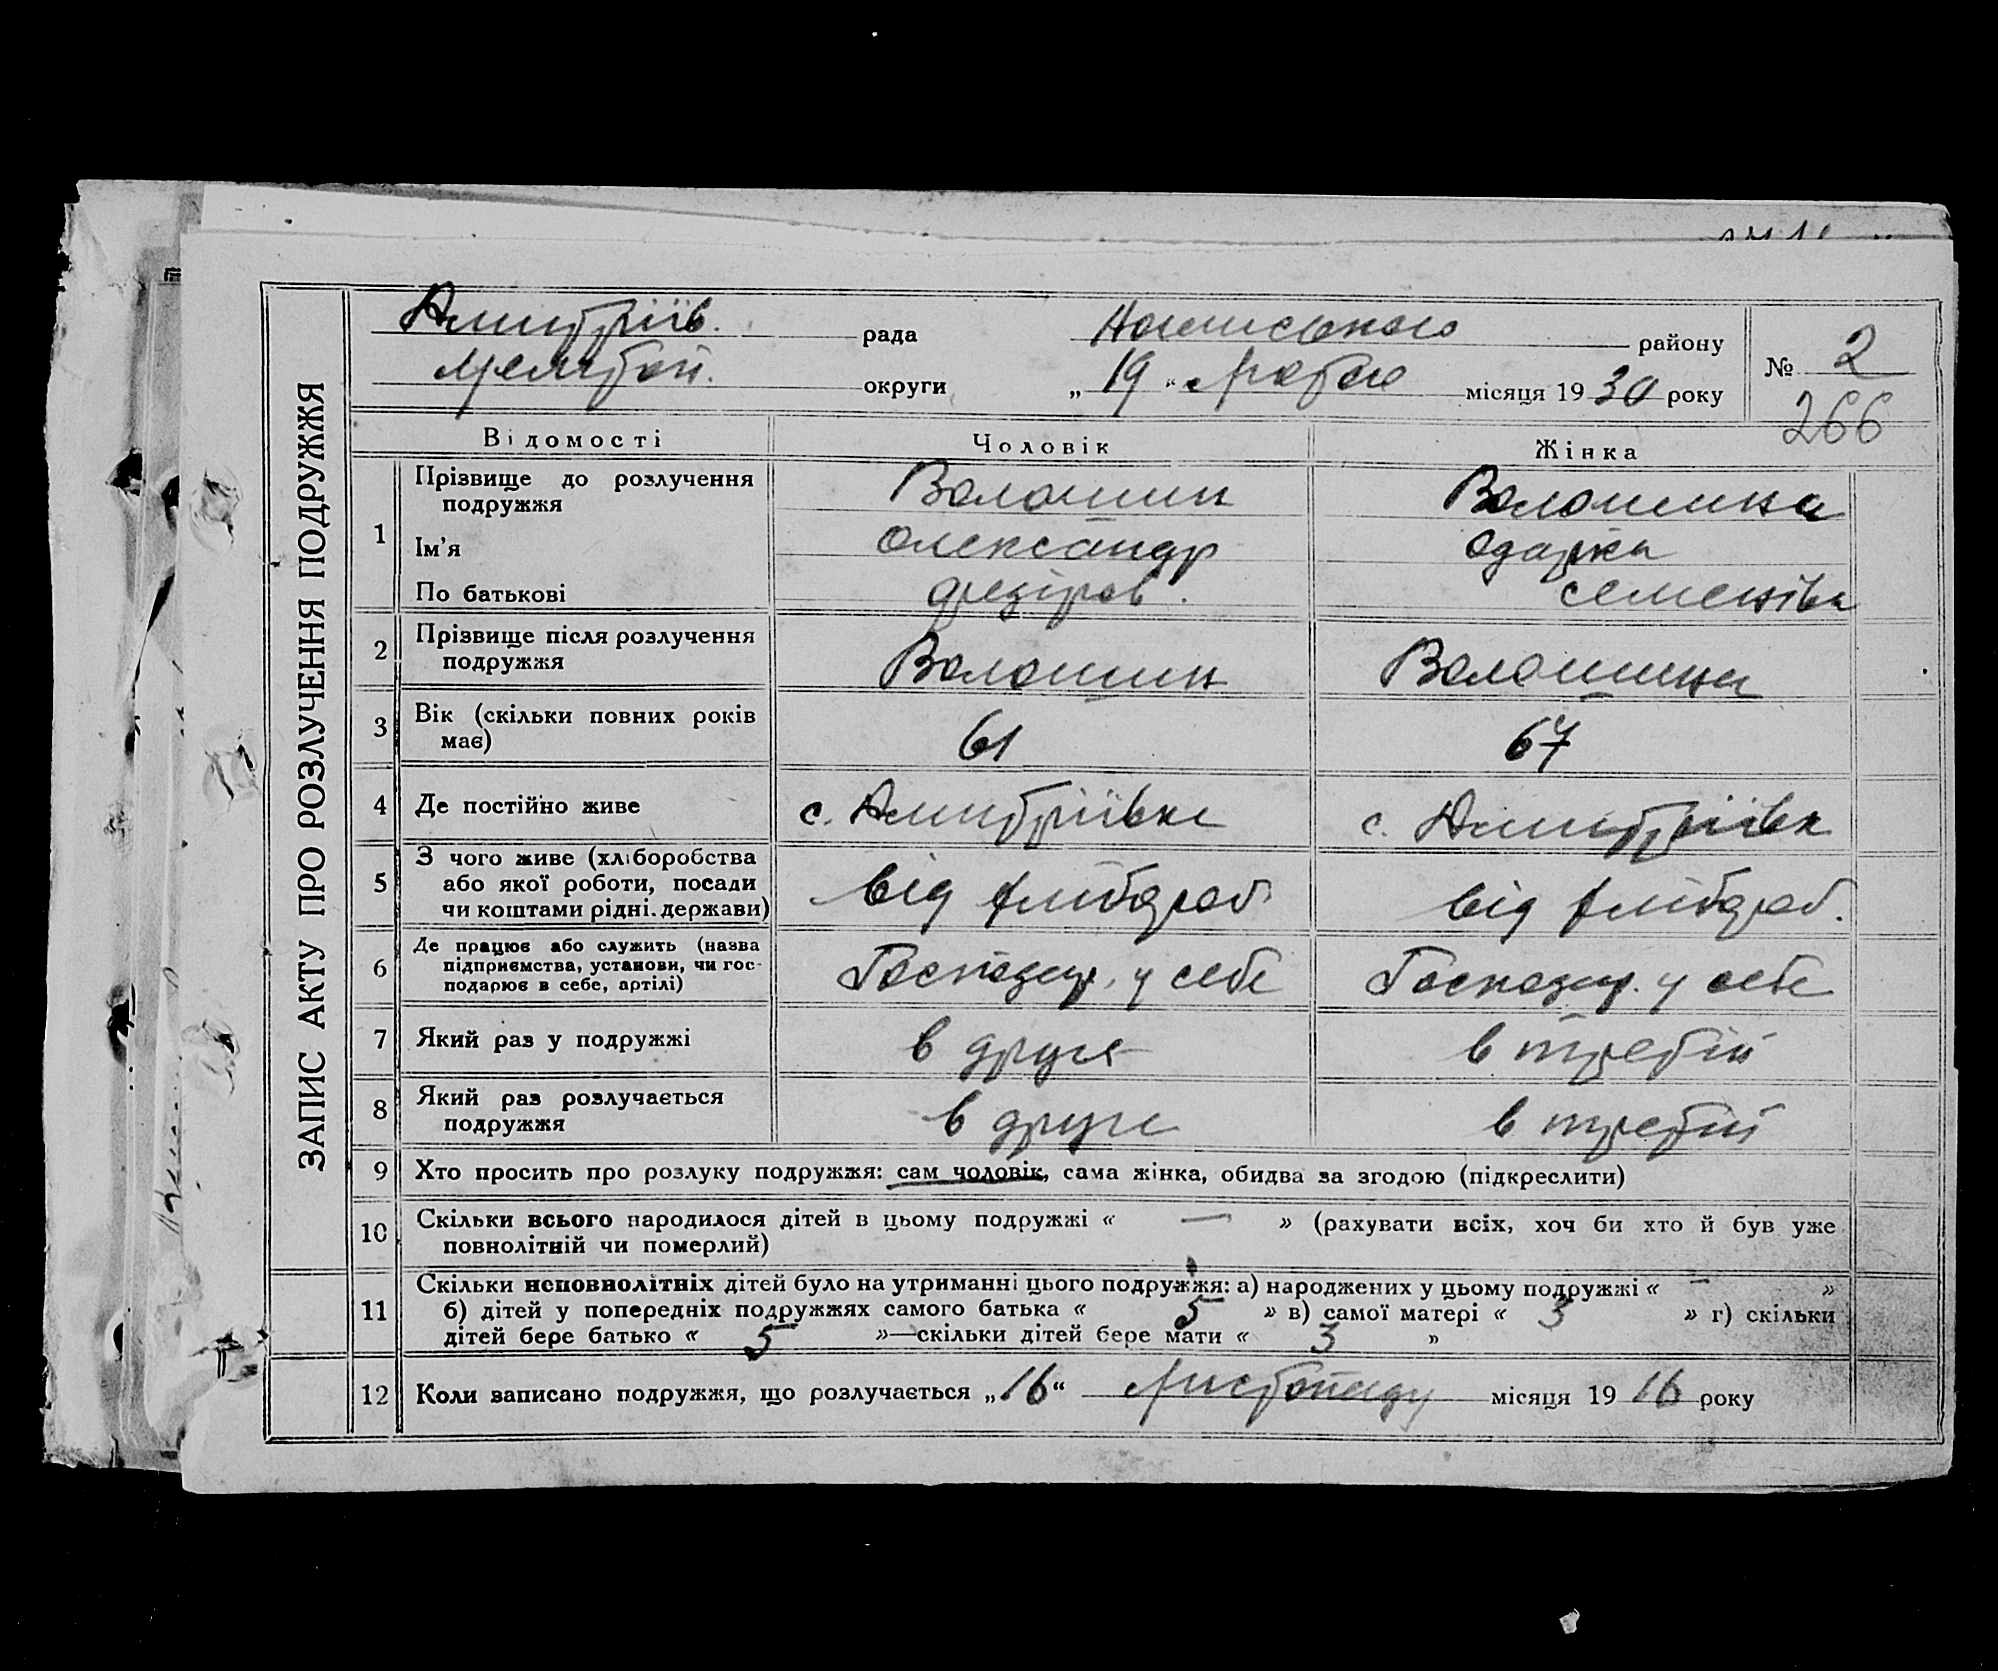 ЗАПИС АКТУ ПРО РОЗЛУЧЕННЯ ПОДРУЖЖЯ
Дмитріїв. рада району
округи „ 19 “ місяця 1930 року
№ 2
266
Відомості Чоловік Жінка
1 Прізвище до розлучення подружжя Волошин Волошина
Ім'я Олександр Одарка
По батькові Семенівна
2 Прізвище після розлучення подружжя Волошин Волошина
3 Вік (скільки повних років має) 61 67
4 Де постійно живе с. Дмитріївка с. Дмитріївка
5 З чого живе (хліборобства
або якої роботи, посади
чи коштами рідні. держави) від від
6 Де працює або служить (назва
підприємства, установи, чи гос-
подарює в себе, артілі) Господар. у себе Господар. у себе
7 Який раз у подружжі в друге в третій
8 Який раз розлучається подружжя в друге в третій
9 Хто просить про розлуку подружжя: сам чоловік, сама жінка, обидва за згодою (підкреслити)
10 Скільки всього народилося дітей в цьому подружжі « — » (рахувати всіх, хоч би хто й був уже
повнолітній чи померлий)
11 Скільки неповнолітніх дітей було на утриманні цього подружжя: а) народжених у цьому подружжі « — »
б) дітей у попередніх подружжях самого батька « 5 » в) самої матері « 3 » г) скільки
дітей бере батько « 5 »—скільки дітей бере мати « 3 »
12 Коли записано подружжя, що розлучається „16“ Листопаду місяця 1916 року